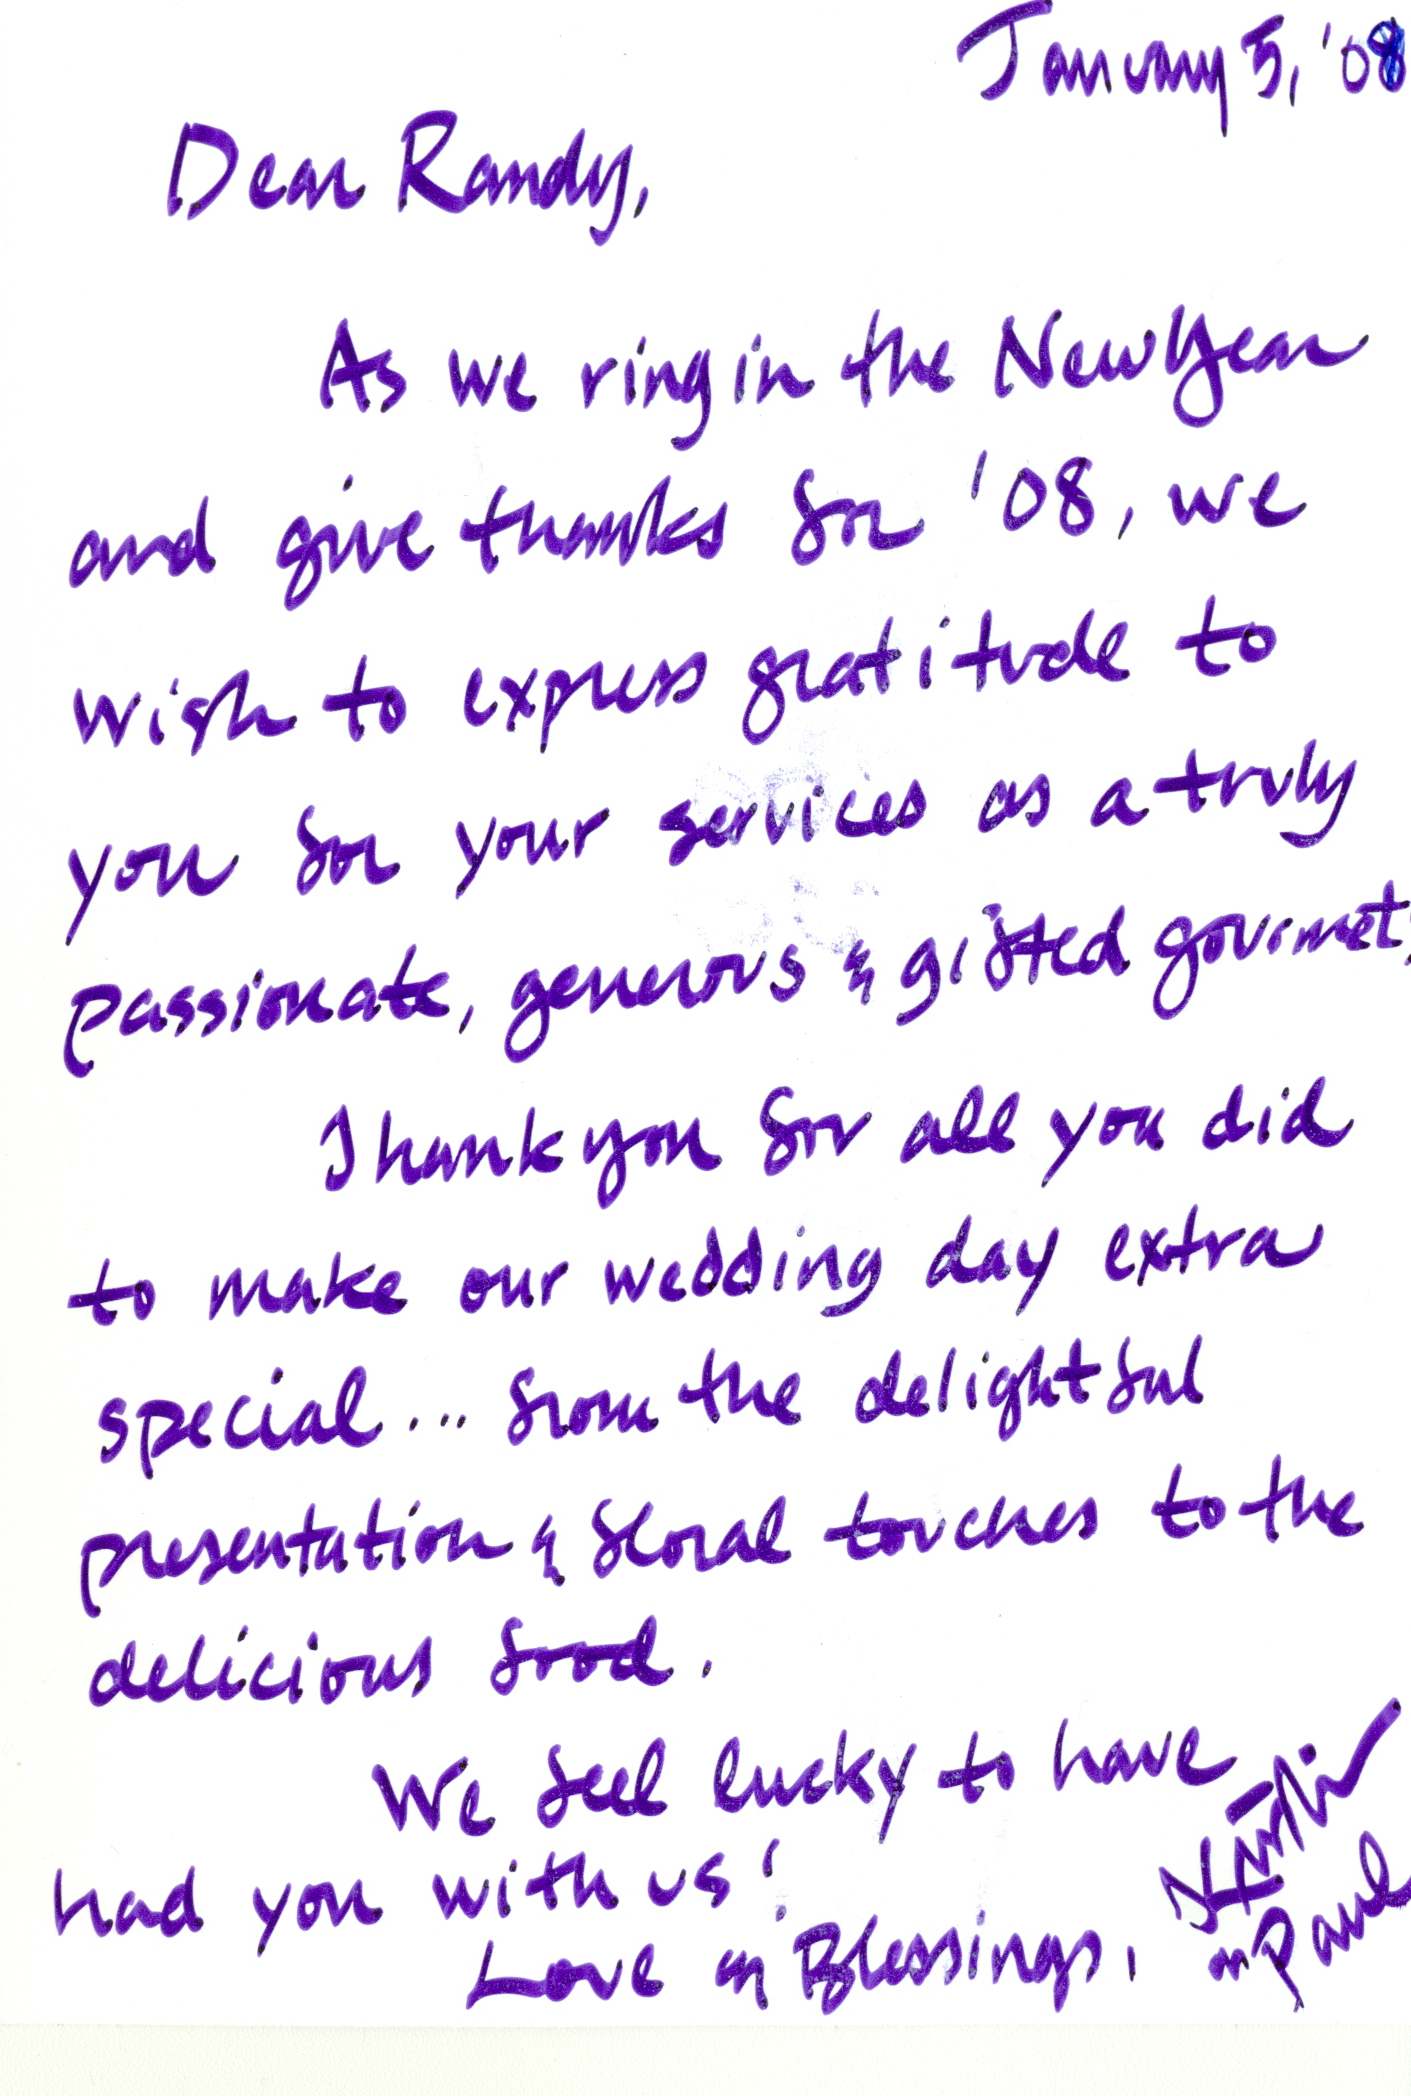 January 5, '08
Dear Randy,
As we ring in the New Year
and give thanks for '08, we
wish to express gratitude to
you for your services as a truly
passionate, generous & gifted gourmet,
Thank you for all you did
to make our wedding day extra
special... from the delightful
presentation & floral touches to the
delicious food.
We feel lucky to have
had you with us!
Love & Blessings,
& Paul